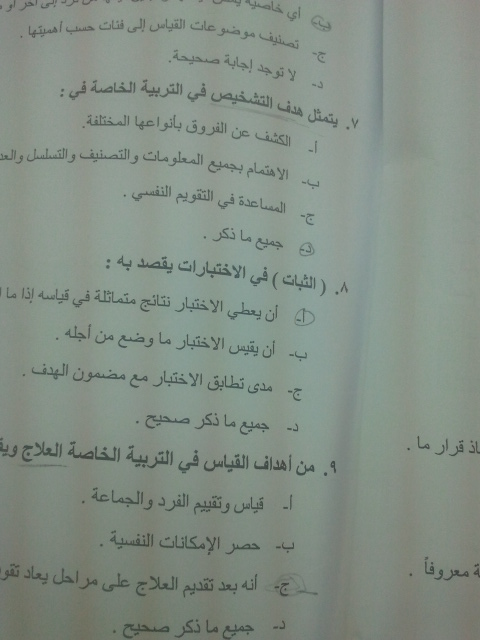 أي خاصية
ج- تصنيف موضوعات القياس إلى فئات حسب أهميتها .
د- لا توجد إجابة صحيحة.
٧. يتمثل هدف التشخيص في التربية الخاصة في :
أ- الكشف عن الفروق بأنواعها المختلفة.
ب- الاهتمام بجميع المعلومات والتصنيف والتسلسل
ج- المساعدة في التقويم النفسي .
د- جميع ما ذكر .
٨. ( الثبات ) في الاختبارات يقصد به :
أ- أن يعطي الاختبار نتائج متماثلة في قياسه إذا ما
ب- أن يقيس الاختبار ما وضع من أجله .
ج- مدى تطابق الاختبار مع مضمون الهدف .
د- جميع ما ذكر صحيح .
٩. من أهداف القياس في التربية الخاصة العلاج
أ- قياس وتقييم الفرد والجماعة .
ب- حصر الإمكانات النفسية .
ج- أنه بعد تقديم العلاج على مراحل يعاد
د- جميع ما ذكر صحيح .
قرار ما .
معروفاً .